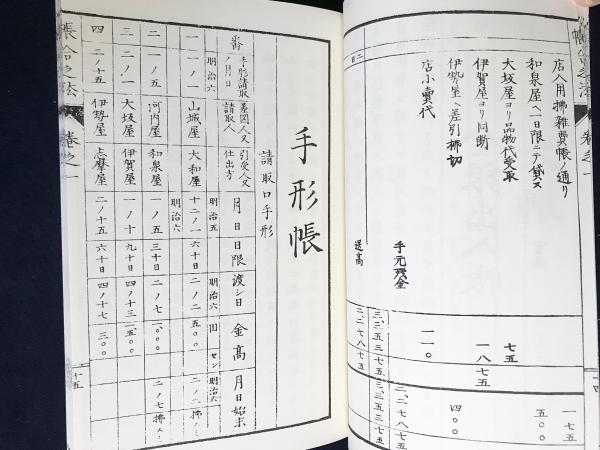 店入用拂雜費帳ノ通り
和泉屋ヘ一日限ニテ貸ス 一七五
大坂屋ヨリ品物代受取 七五 五〇〇
伊賀屋ヨリ同断 一八七五
伊勢屋ヘ差引拂切 四〇〇
店小賣代 一一〇
手元残金 二、二七八七五
三、三五三七五 三、三五三七五
送高 二、二七八七五
手形帳
請取口手形
番 手形請取ノ月日 差図人又請取人 引受人又仕出方 月日 日限 渡シ日 金高 月日始末
明治六 明治五 明治六 円 セン 明治六
一 一ノ一 山城屋 大和屋 十二ノ一 六十日 二ノ二 五〇〇 二ノ二拂スミ
明治六
二 一ノ五 河内屋 和泉屋 一ノ五 三十日 二ノ七 一〇〇〇 二ノ七拂スミ
三 二ノ一 大坂屋 伊賀屋 一ノ十 九十日 四ノ十三 二五〇〇
四 二ノ十五 伊勢屋 志摩屋 二ノ十五 六十日 四ノ十七 三〇〇
帳合之法 巻之一
二十五